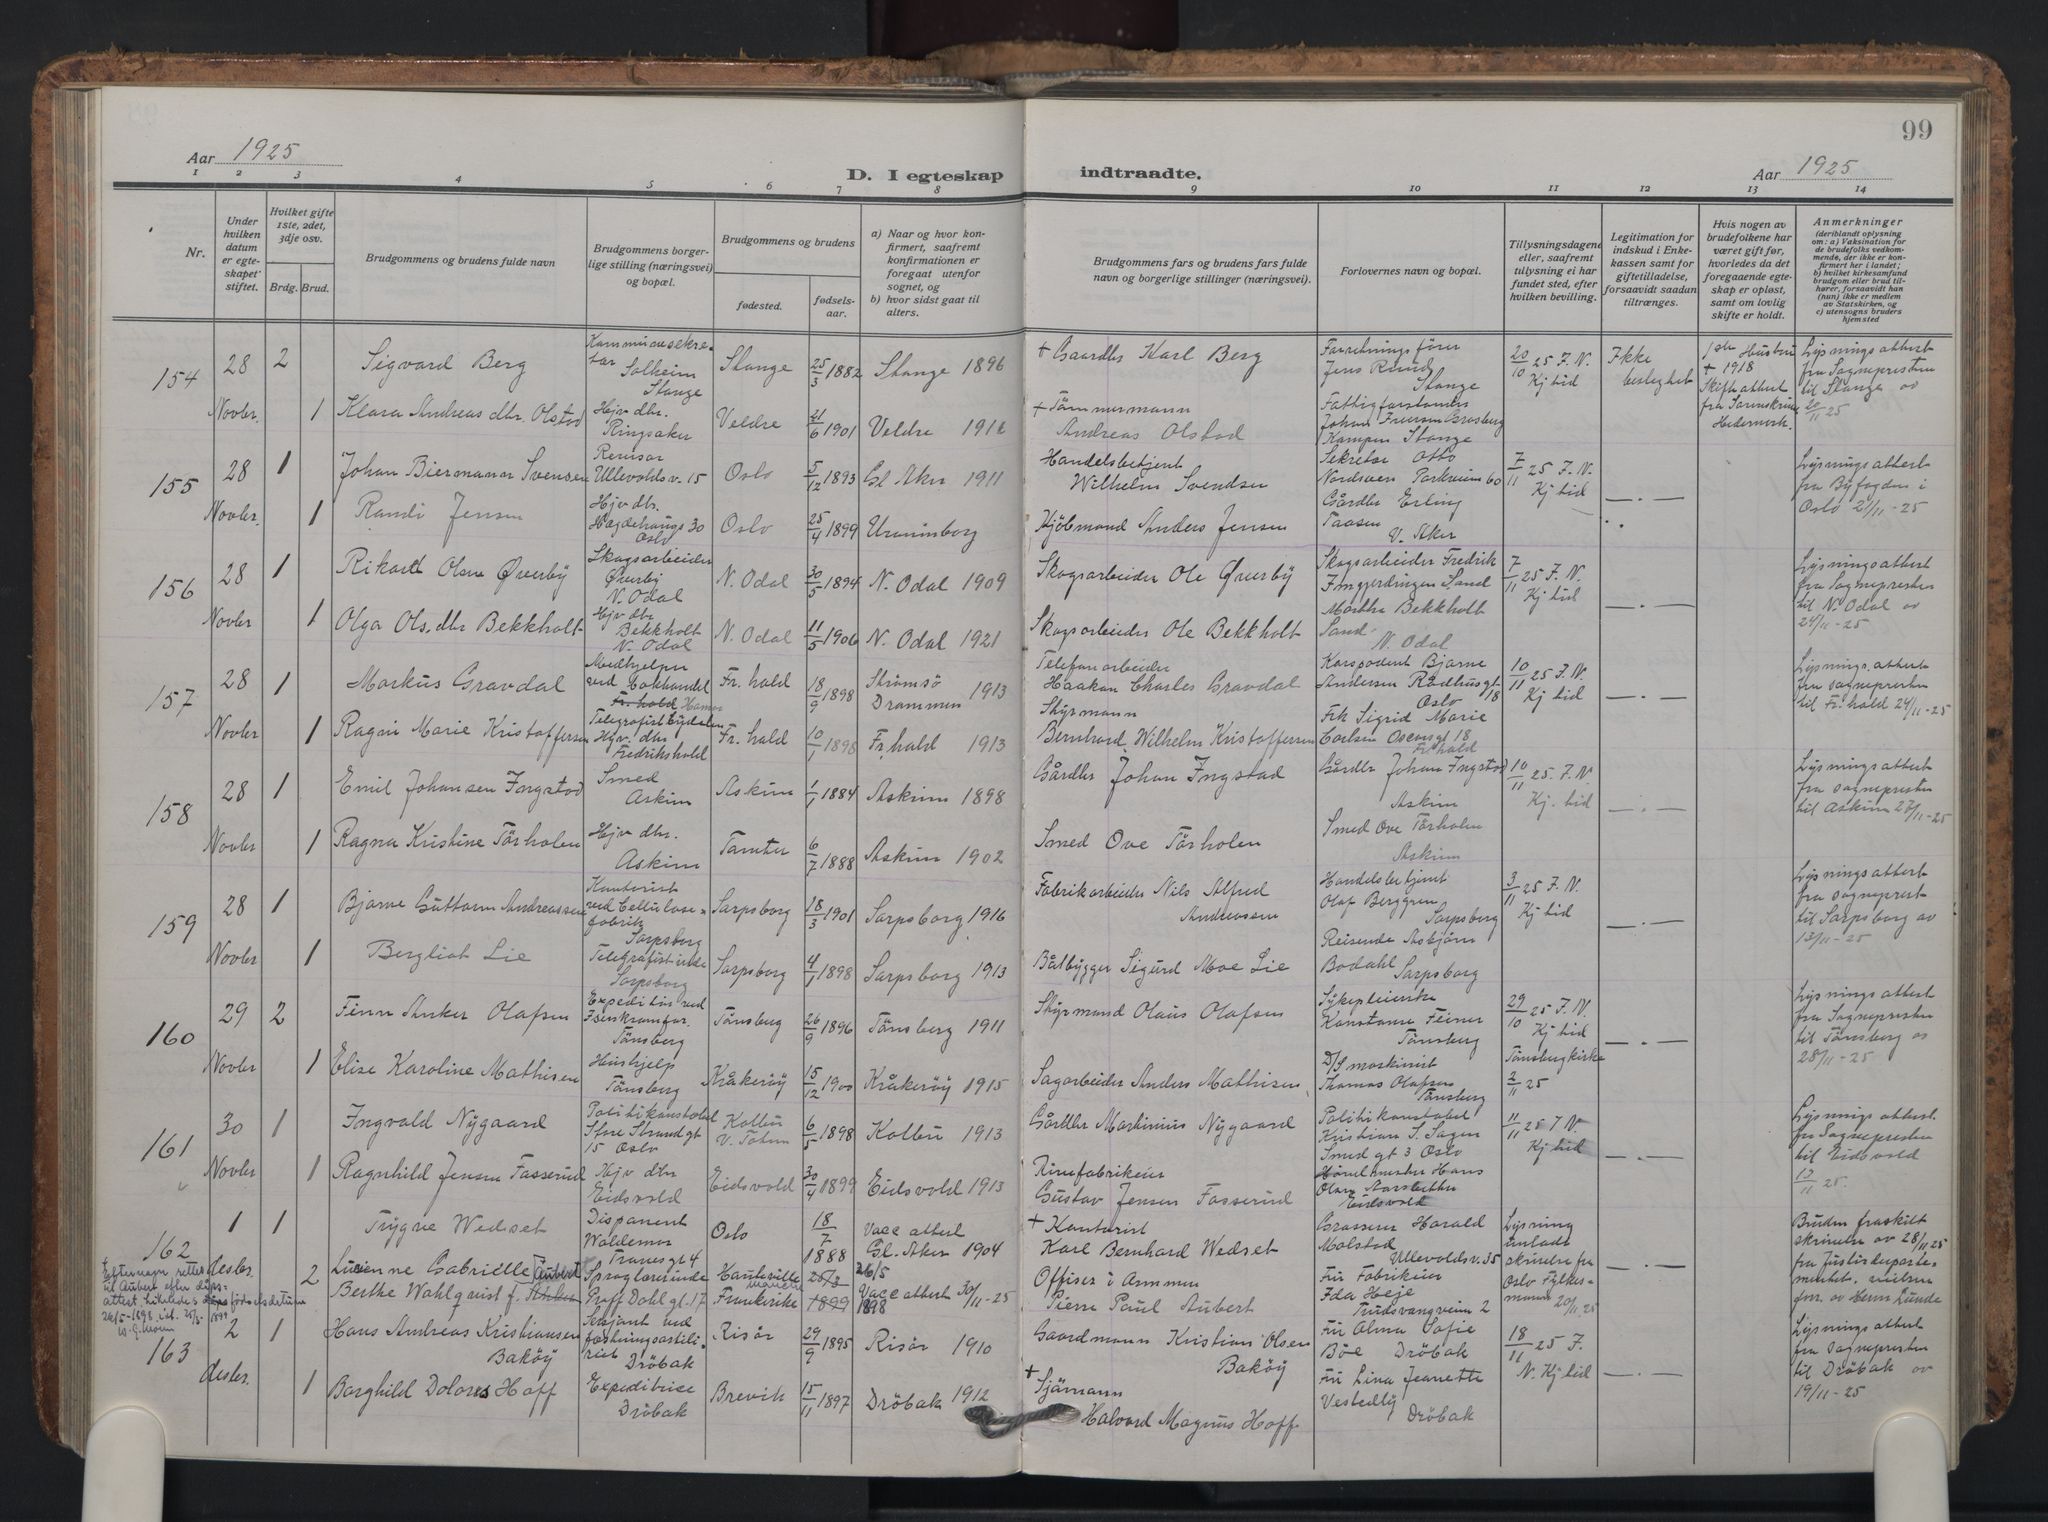 99
Aar 1925
D. I egteskap indtraadte.
Aar 1925
1 2 3 4 5 6 7 8 9 10 11 12 13 14
Nr.
Under hvilken datum er egteskapet stiftet.
Hvilket gifte 1ste, 2det, 3dje osv.
Brdg. Brud.
Brudgommens og brudens fulde navn
Brudgommens borgerlige stilling (næringsvei) og bopæl.
Brudgommens og brudens
fødested. fødselsaar.
a) Naar og hvor konfirmert, saafremt konfirmationen er foregaat utenfor sognet, og
b) hvor sidst gaat til alters.
Brudgommens fars og brudens fars fulde navn og borgerlige stillinger (næringsvei).
Forlovernes navn og bopæl.
Tillysningsdagene eller, saafremt tillysning ei har fundet sted, efter hvilken bevilling.
Legitimation for indskud i Enkekassen samt for giftetilladelse, forsaavidt saadan tiltrænges.
Hvis nogen av brudefolkene har været gift før, hvorledes da det foregaaende egteskap er opløst, samt om lovlig skifte er holdt.
Anmerkninger (deriblandt oplysning om: a) Vaksination for de brudefolks vedkommende, der ikke er konfirmert her i landet; b) hvilket kirkesamfund brudgom eller brud tilhører, forsaavidt han (hun) ikke er medlem av Statskirken, og c) utensogns bruders hjemsted
154 28 2 Sigvard Berg Kommunesekretær Solheim Stange Stange 25/3 1882 Stange 1896 + Gaardbr Karl Berg Forretningsfører Jens Rund Stange 20/10 25 F. N. Kj tid Ikke beslegtet 1ste Hustru + 1918 Skifteattest fra Sorenskriv. Hedemark Lysningsattest fra Sognepresten til Stange av 20/11 25
Novbr. 1 Klara Andreasdbr. Olstad Hjv dbr. Ringsaker Veldre 21/6 1901 Veldre 1916 + Tømmermann Andreas Olstad Fattigforstander Johan Kampen Stange
155 28 1 Johan Biermann Svensen Revisor Ullevoldsv. 15 Oslo 5/12 1893 Gl. Aker 1911 Handelsbetjent Wilhelm Svendsen Sekretær Otto Nordsveen Parkveien 60 7/11 25 F. N. Kj tid — . — Lysningsattest fra Byfogden i Oslo 21/11-25
Novbr. 1 Randi Jensen Hjv dbr. Hægdehaugs 30 Oslo Oslo 25/4 1899 Uranienborg Kjøbmand Anders Jensen Gårdbr Erling Taasen V. Aker
156 28 1 Rikard Olsen Øverby Skogsarbeider Øverby N. Odal N. Odal 30/5 1894 N. Odal 1909 Skogsarbeider Ole Øverby Skogsarbeider Fredrik Sand 7/11 25 F. N. Kj tid — . — Lysningsattest fra Sognepresten til N. Odal av 24/11-25
Novbr 1 Olga Ols.dbr Bekkholt Hjv dbr Bekkholt N. Odal N. Odal 11/5 1906 N. Odal 1921 Skogsarbeider Ole Bekkholt Marthe Bekkholt Sand N. Odal
157 28 1 Markus Gravdal Medhjelper ved Bokhandel Fr. hald Hamar Fr. hald 18/9 1898 Strømsø Drammen 1913 Telefonarbeider Haakon Charles Gravdal Korspodent Bjarne Andersen Rådhusgt 18 Oslo 10/11 25 F. N. Kj tid — . — Lysnings.attest fra sognepresten til Fr. hald 24/11-25
Novbr 1 Ragni Marie Kristoffersen Hjv. dbr Fredrikshald Fr. hald 10/1 1898 Fr. hald 1913 Styrmann Bernhard Wilhelm Kristoffersen Frk Sigrid Marie Carlsen Oscarsgt 18 Fr hald
158 28 1 Emil Johansen Ingstad Smed Askim Askim 1/1 1884 Askim 1898 Gårdbr Johan Ingstad Gårdbr Johan Ingstad Askim 10/11 25. F. N Kj. tid — . — Lysningsattest fra sognepresten til Askim 27/11-25
Novbr 1 Ragna Kristine Tørholen Hjv dbr. Askim Tomter 6/7 1888 Askim 1902 Smed Ove Tørholen Smed Ove Tørholen Askim
159 28 1 Bjarne Guttorm Andreassen Kontorist ved Cellulosefabrik Sarpsborg Sarpsborg 18/3 1901 Sarpsborg 1916 Fabrikarbeider Nils Alfred Andreassen Handelsbetjent Olaf Berggren Sarpsborg 3/11 25 F. N. Kj tid — . — Lysningsattest fra sognepresten til Sarpsborg av 13/11-25
Novbr 1 Bergliot Lie Telegrafistinde Sarpsborg Sarpsborg 4/1 1898 Sarpsborg 1913 Båtbygger Sigurd Moe Lie Reisende Asbjørn Bodahl Sarpsborg
160 29 2 Finn Anker Olafsen Expeditør ved Tønsberg Tønsberg 26/9 1896 Tønsberg 1911 Styrmand Olaus Olafsen Sykepleierske Konstanse Feiner Tønsberg 29/10 25 F. N. Kj tid — . — Lysningsattest fra Sognepresten til Tønsberg av 28/11-25
Novbr 1 Elise Karoline Mathisen Hushjelp Tønsberg Kråkerøy 15/12 1900 Kråkerøy 1915 Sagarbeider Anders Mathisen D/S maskinist Thomas Olafsen Tønsberg Tønsbergkirke 2/11 25
161 30 1 Ingvald Nygaard Politikonstabel Store Strandgt 15 Oslo Kolbu V. Toten 6/5 1898 Kolbu 1913 Gårdbr Martinius Nygaard Politikonstabel Kristian S. Sagen Smedgt 3 Oslo 11/11 25 F N. Kj tid — . — Lysningsattest. fra Sognepresten til Eidsvold 12/11 25.
Novbr 1 Ragnhild Jensen Fasserud Hjv dbr Eidsvold Eidsvold 30/4 1899 Eidsvold 1913 Gustav Jensen Fasserud Hans Olsen Eidsvold
162 1 1 Trygve Wedset Disponent Waldemar Thranesgt 4 Oslo 18/7 1888 Vacc attest Gl. Aker 1904 + Kontorist Karl Bernhard Wedset Grosserer Harald Molstad Ullevoldsv. 35 Lysning unladt skrivelse fra Oslo Fylkesmann 20/11.25 Bruden fraskilt skrivelse av 28/11 25 fra Justisdepartementet
desbr. 2 Lucienne Gabrielle Aubert Berthe Wahlquist f. Sproglærerinde Proff Dahlgt. 17 Hauteville Frankrike 25/3 1899 26/5 1898 Vacc attest 30/11-25 Offiser i Armeen Pierre Paul Aubert Fru Fabrikeier Ida Heje Trudvangveien 2
Efternavn rettes til Aubert efter dåpsattest, likeledes fødselsdatum 26/5-1898 ist. 25/3. 1899
163 2 1 Hans Andreas Kristiansen Bakøy Sersjant ved festningsartilleriet Drøbak Risør 29/9 1895 Risør 1910 Gaardmann Kristian Olsen Bakøy Fru Alma Sofie Bøe Drøbak 18/11 25 F. N. Kj tid — . — Lysningsattest fra sognepresten til Drøbak av 19/11-25
desbr. 1 Borghild Dolores Hoff Expeditrice Drøbak Brevik 15/11 1897 Drøbak 1912 + Sjømann Halvard Magnus Hoff Fru Lina Jeanette Vestedly Drøbak